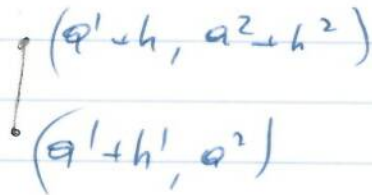 (a¹+h, a²+h²)
(a¹+h¹, a²)